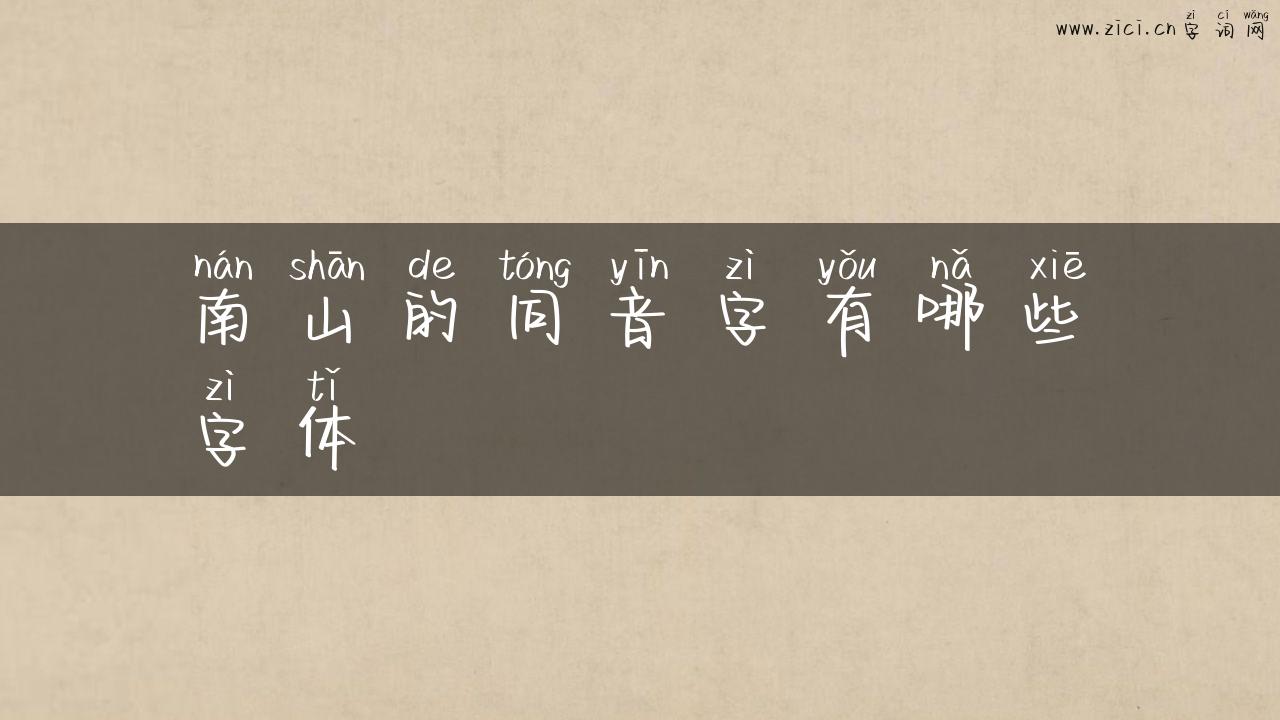 zì cí wǎng
www.zici.cn字词网
nán shān de tóng yīn zì yǒu nǎ xiē
南山的同音字有哪些
zì tǐ
字体